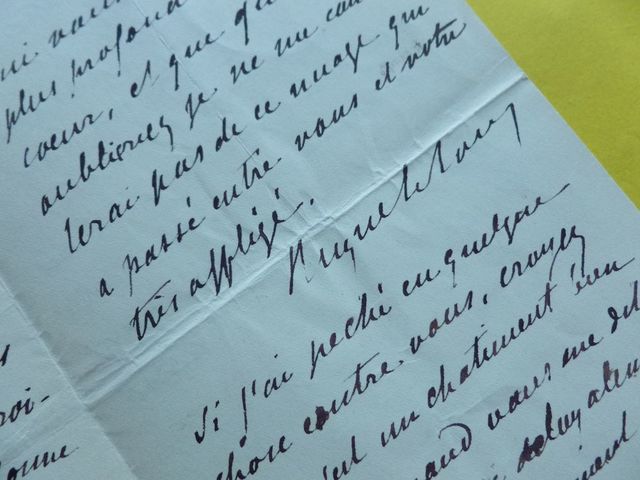 plus profond
coeur, et que
oublierez je ne me con
lerai pas de ce nuage qui
a passé entre vous et votre
très affligé.
Si j'ai peché en quelque
chose contre vous, croyez
c'est un chatiment bien
quand vous me dit
oi-
onne